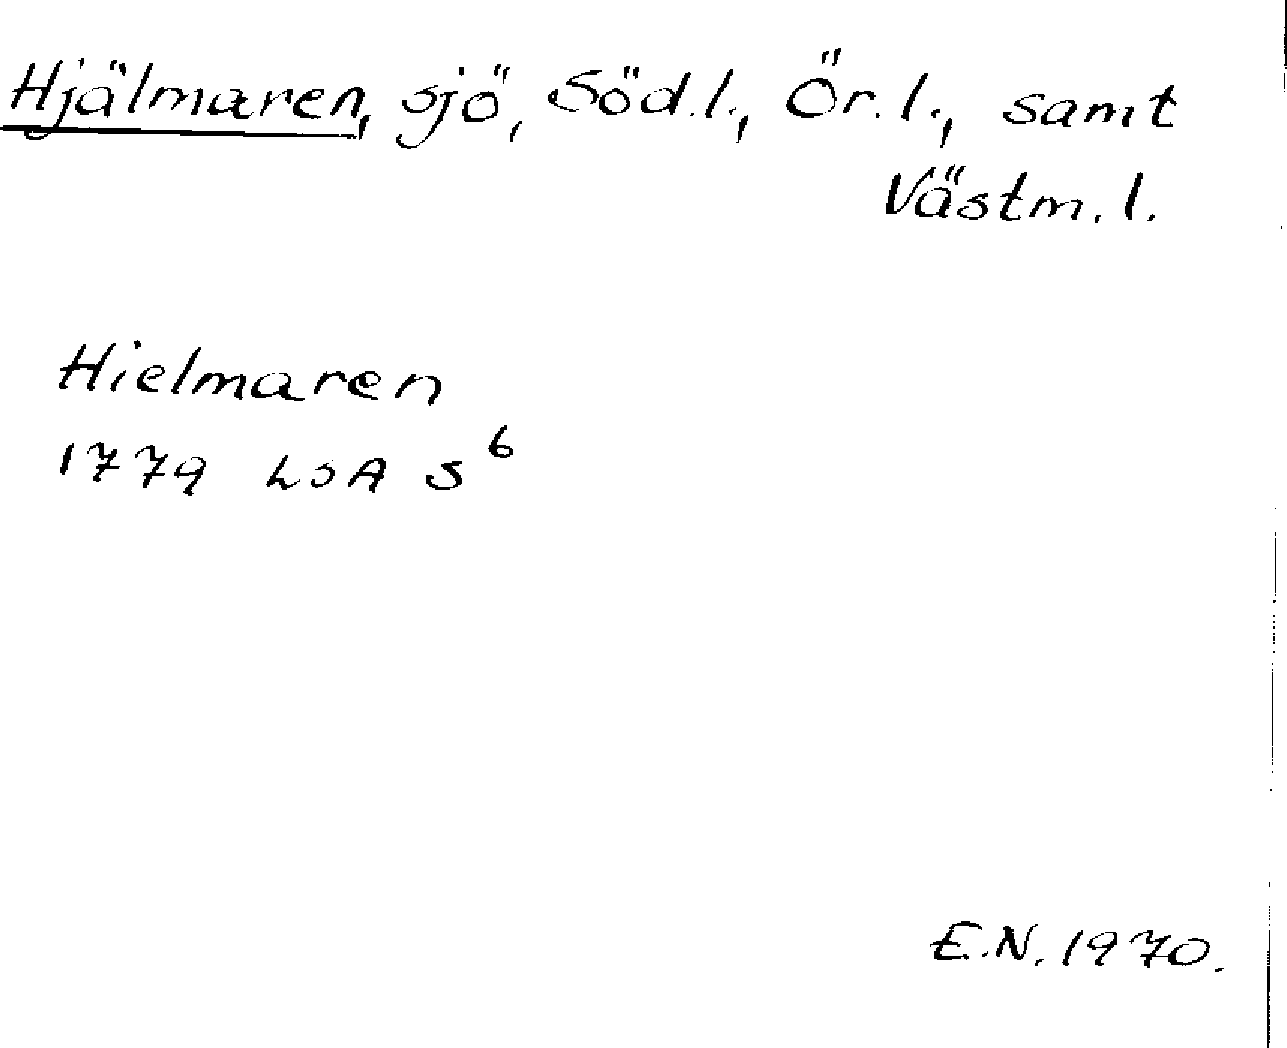 Hjälmaren, sjö, Söd.l., Ör.l., samt
Västm.l.
Hielmaren
1779 LSA S⁶
E.N. 1970.